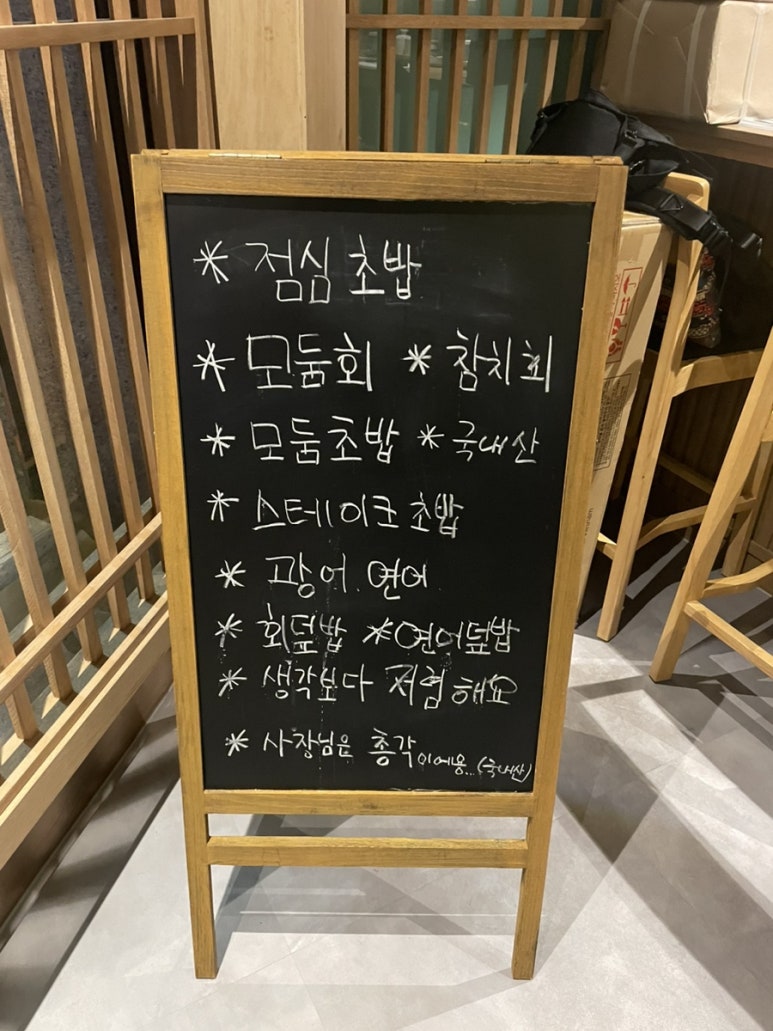 * 점심 초밥
* 모둠회 * 참치회
* 모둠초밥 * 국내산
* 스테이크초밥
* 광어. 연어
* 회덮밥 * 연어덮밥
* 생각보다 저렴해요
* 사장님은 총각이에용..(국내산)